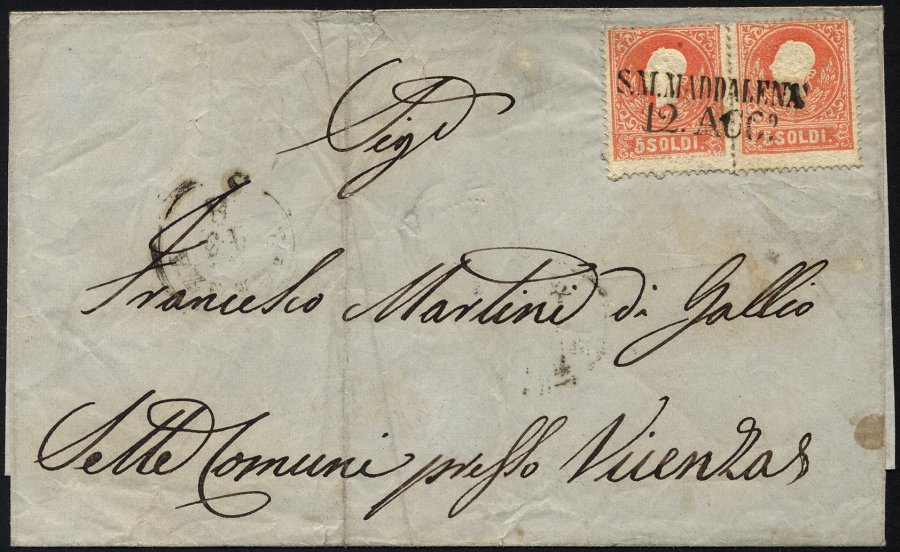 S.M.MADDALENA
12. AGO.
5 SOLDI. 5 SOLDI.
Sigr
Francesco Martini di Gallio
Sette Comuni presso Vicenza